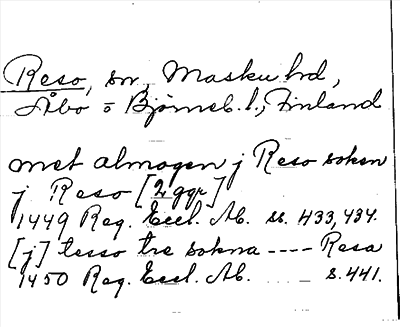 Reso, sn, Masku hd,
Åbo o Björneb. l., Finland
met almogen j Reso sokn
j Reso [2 ggr]
1449 Reg. Eccl. Ab. ss. 433, 434.
[j] tesso tre sokna ---- Resa
1450 Reg. Eccl. Ab. s. 441.